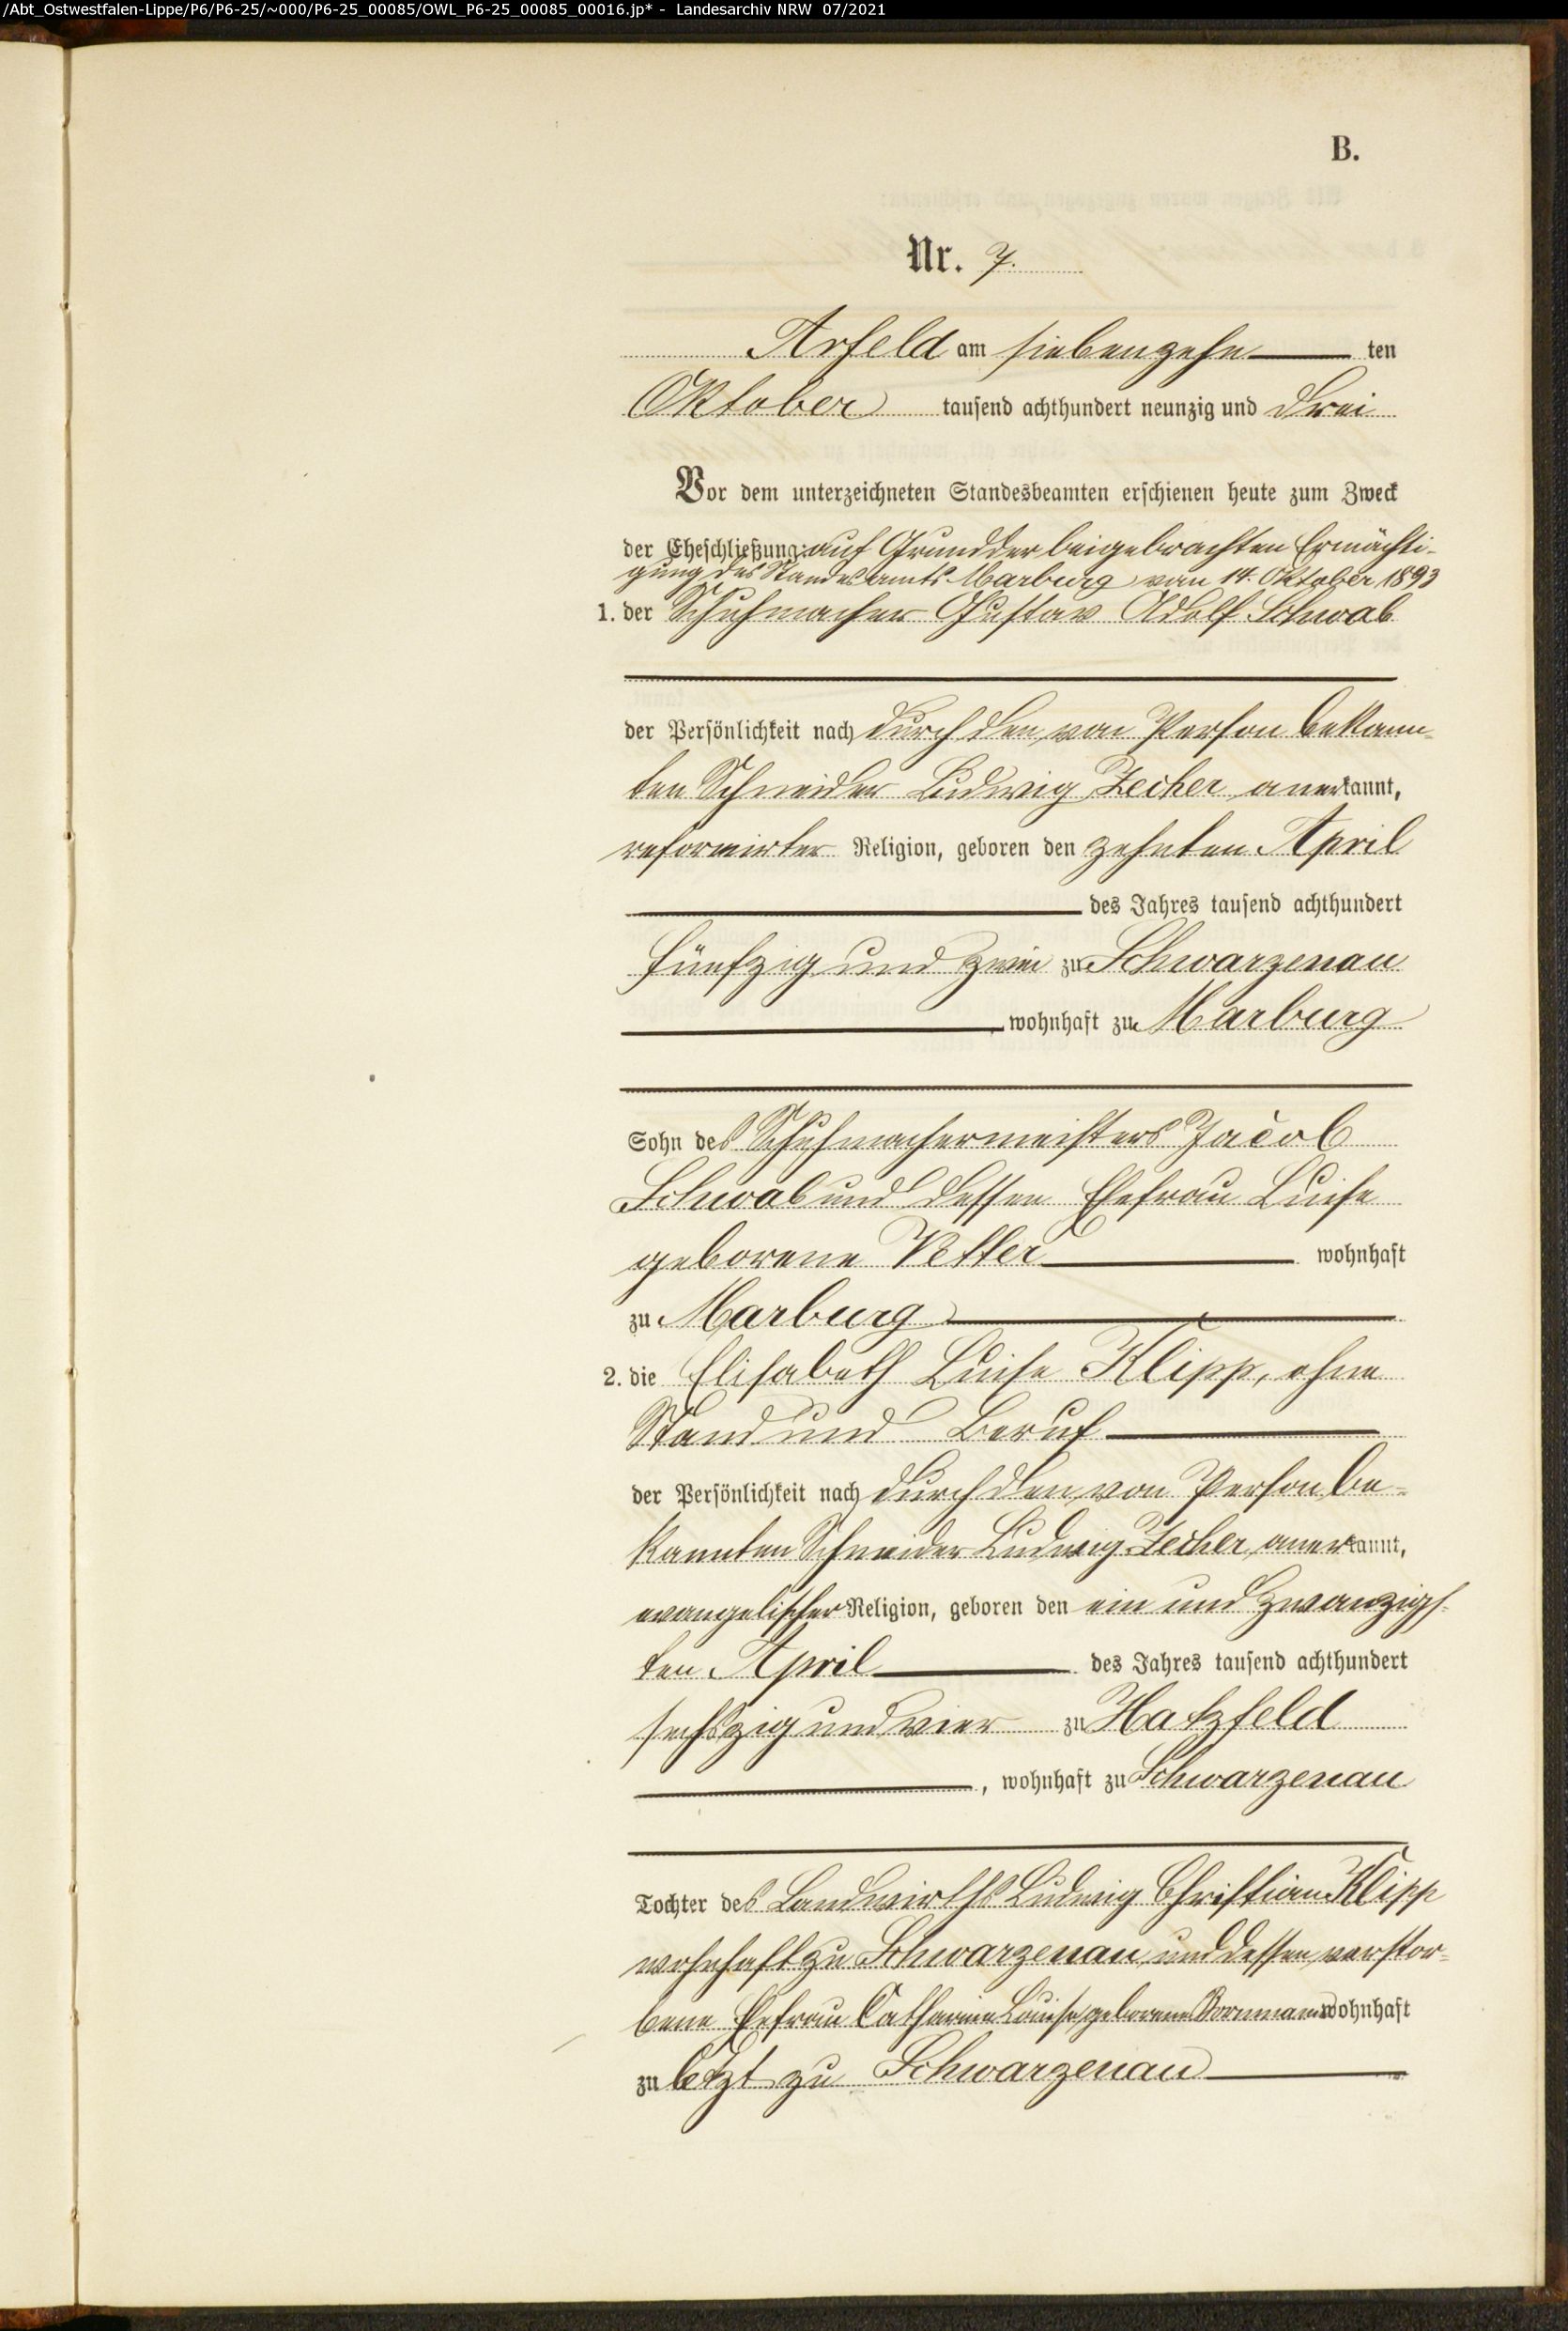 /Abt_Ostwestfalen-Lippe/P6/P6-25/~000/P6-25_00085/OWL_P6-25_00085_00016.jp* - Landesarchiv NRW 07/2021
B.
Nr. 7.
Arfeld am siebenzehn ten
Oktober tausend achthundert neunzig und drei
Vor dem unterzeichneten Standesbeamten erschienen heute zum Zweck
der Eheschließung: auf Grund der beigebrachten Ermächti-
gung des Standesamts Marburg vom 14. Oktober 1893
1. der Schuhmacher Gustav Adolf Schwab
der Persönlichkeit nach durch den von Person bekann-
ten Schneider Ludwig Zecher anerkannt,
reformirter Religion, geboren den zehnten April
des Jahres tausend achthundert
fünfzig und zwei zu Schwarzenau
, wohnhaft zu Marburg
Sohn des Schuhmachermeisters Jacob
Schwab und dessen Ehefrau Luise
geborene Vetter wohnhaft
zu Marburg
2. die Elisabeth Luise Klipp, ohne
Stand und Beruf
der Persönlichkeit nach durch den von Person be-
kannten Schneider Ludwig Zecher anerkannt,
evangelischer Religion, geboren den ein und zwanzigs-
ten April des Jahres tausend achthundert
sechszig und vier zu Hatzfeld
, wohnhaft zu Schwarzenau
Tochter des Landwirths Ludwig Christian Klipp
wohnhaft zu Schwarzenau und dessen verstor-
bene Ehefrau Catharine Louise geborene Bornmann wohnhaft
zu letzt zu Schwarzenau